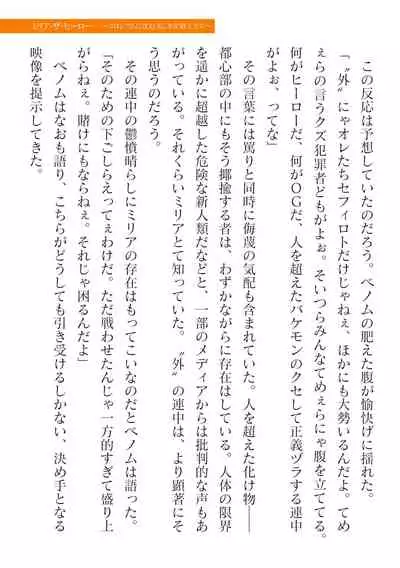 ミリアン・ザ・ヒーロー
この反応は予想していたのだろう。ベノムの肥えた腹が愉快げに揺れた。
「〝外〟にゃオレたちセフィロトだけじゃねぇ、ほかにも大勢いるんだよ。てめ
ぇらの言うクズ犯罪者どもがよぉ。そいつらみんなてめぇらにゃ腹を立ててる。
何がヒーローだ、何がＯＧだ、人を超えたバケモンのクセして正義ヅラする連中
がよぉ、ってな」
その言葉には罵りと同時に侮蔑の気配も含まれていた。人を超えた化け物――
都心部の中にもそう揶揄する者は、わずかながらに存在はしている。人体の限界
を遥かに超越した危険な新人類だなどと、一部のメディアからは批判的な声もあ
がっている。それくらいミリアとて知っていた。〝外〟の連中は、より顕著にそ
う思うのだろう。
その連中の鬱憤晴らしにミリアの存在はもってこいなのだとベノムは語った。
「そのための下ごしらえってぇわけだ。ただ戦わせたんじゃ一方的すぎて盛り上
がらねぇ。賭けにもならねぇ。それじゃ困るんだよ」
ベノムはなおも語り、こちらがどうしても引き受けるしかない、決め手となる
映像を提示してきた。